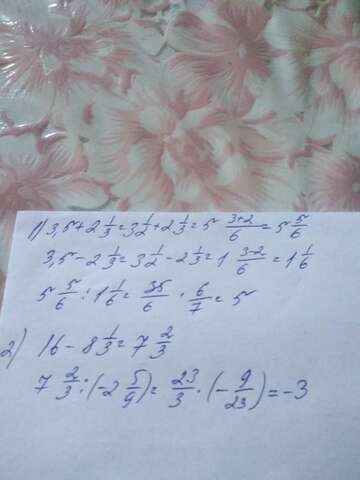 1) 3,5+2 1/3=3 1/2+2 1/3=5 3+2/6=5 5/6
3,5-2 1/3=3 1/2-2 1/3=1 3-2/6=1 1/6
5 5/6:1 1/6=35/6·6/7=5
2) 16-8 1/3=7 2/3
7 2/3:(-2 5/9)=23/3·(-9/23)=-3